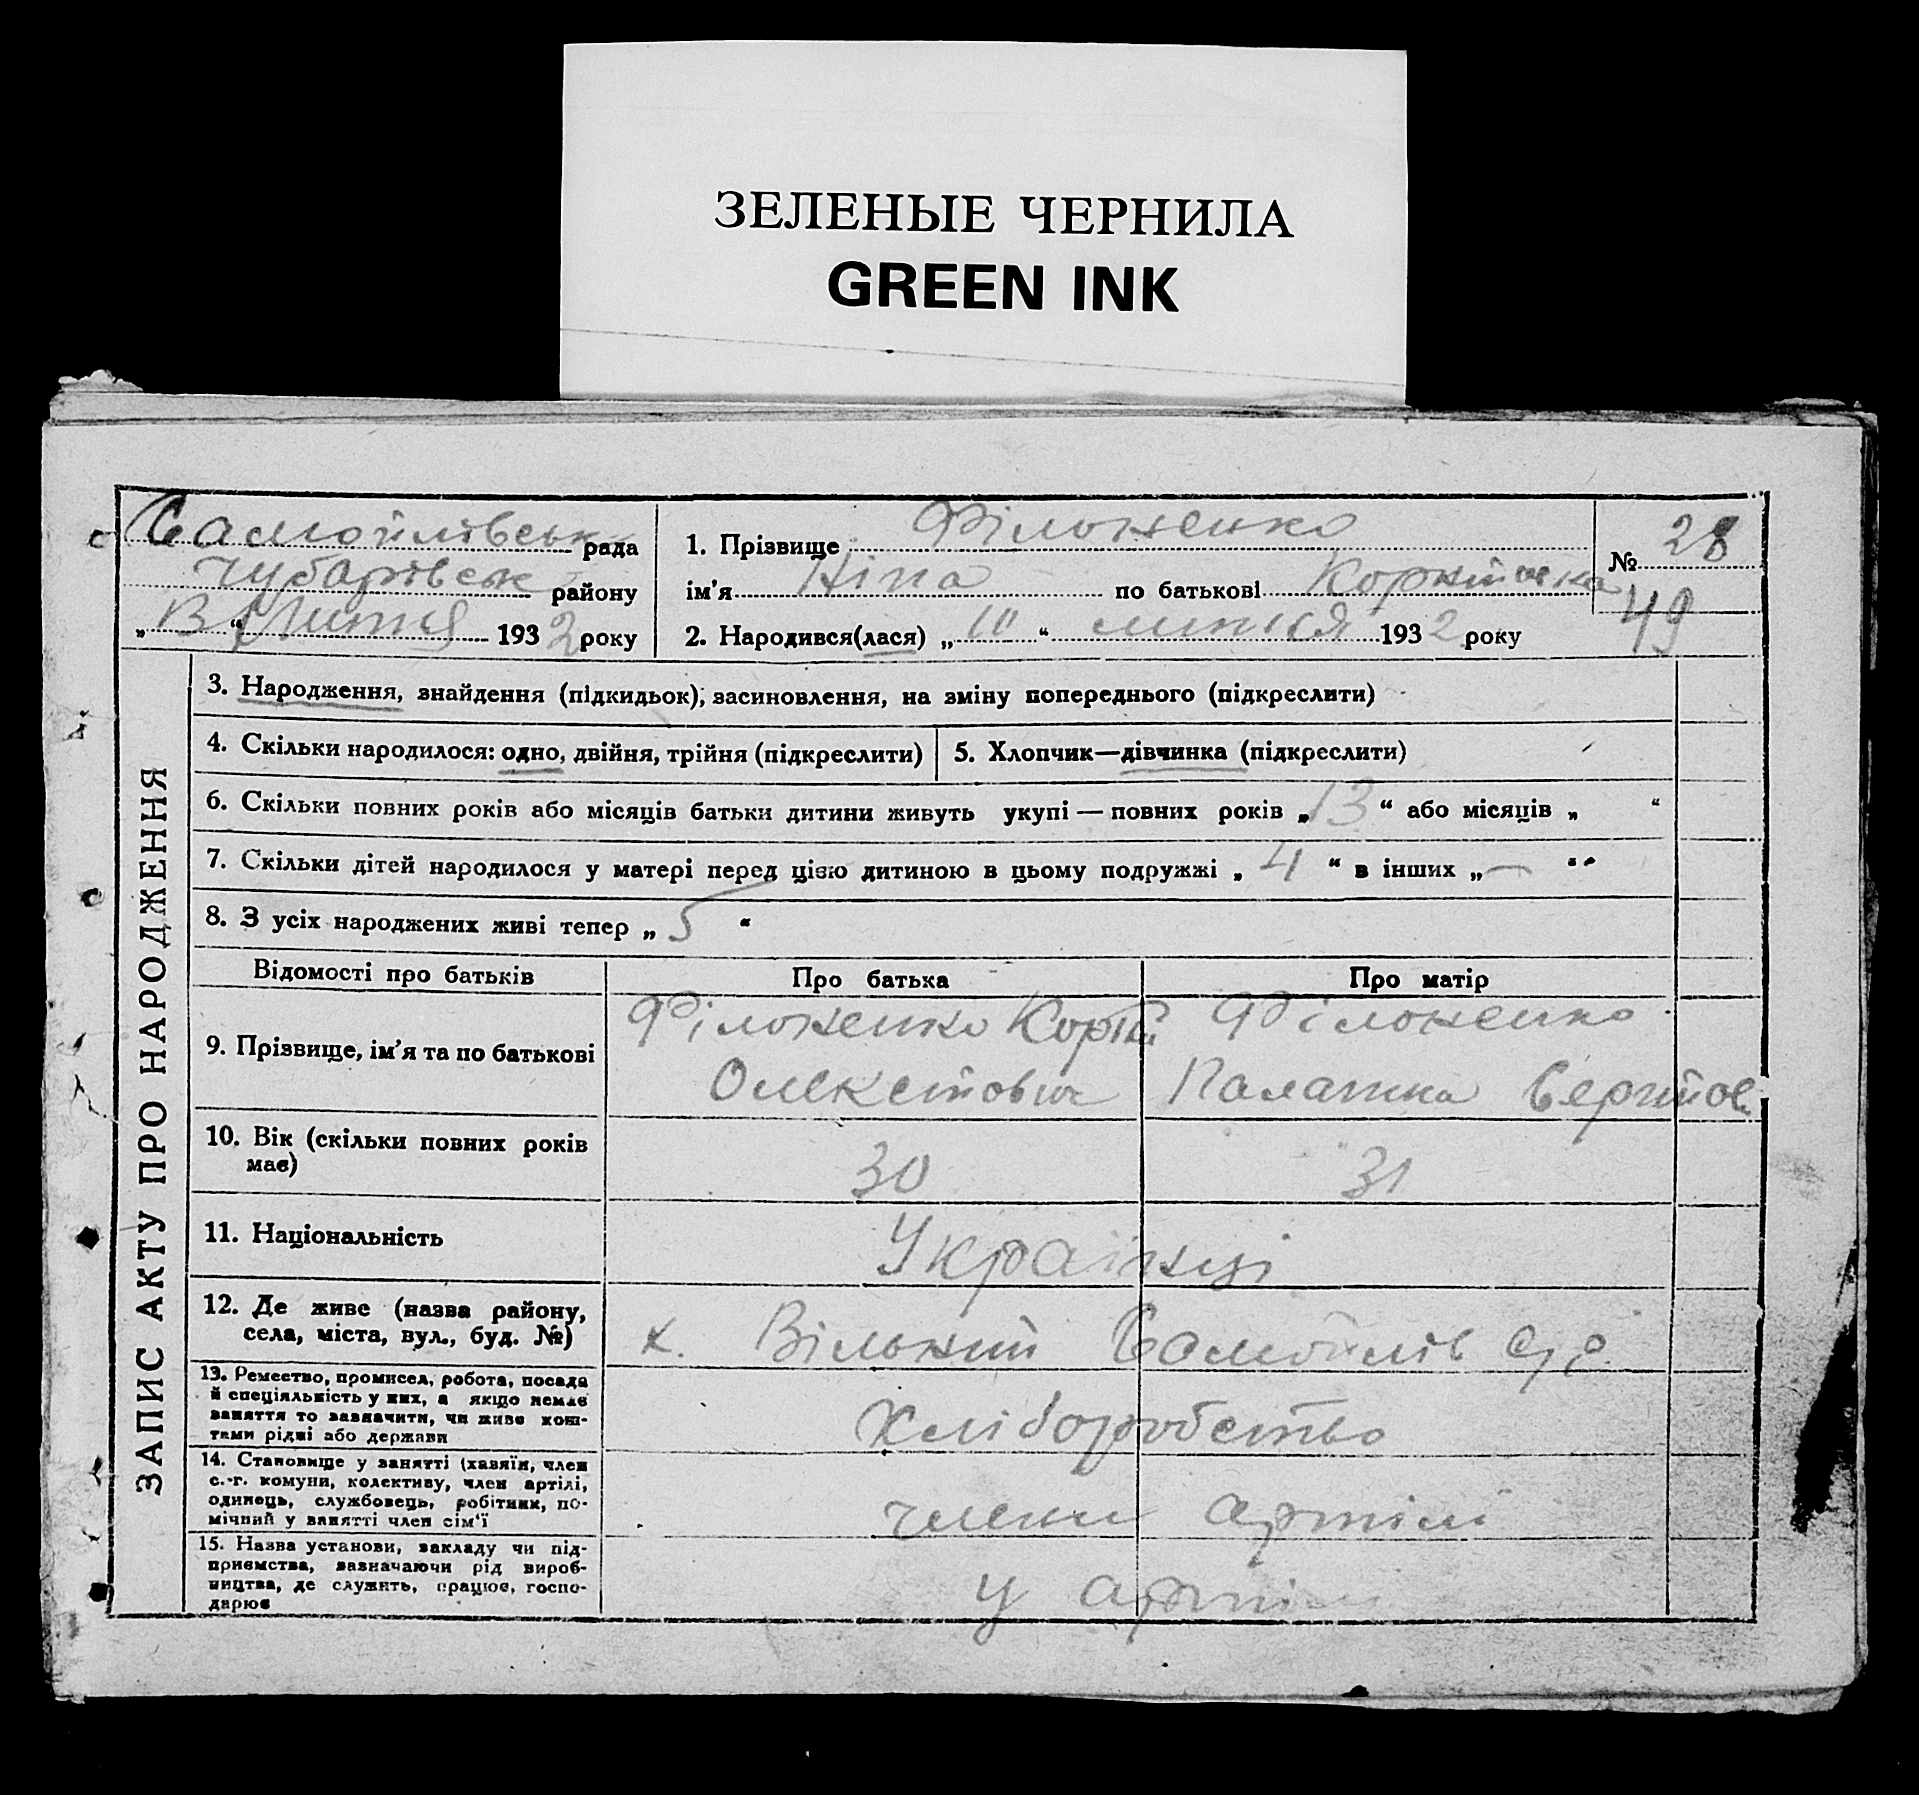 ЗЕЛЕНЫЕ ЧЕРНИЛА
GREEN INK
Самойлівська рада
Чубарівськ району
„ “ 1932 року
1. Прізвище Філоненко
ім'я Ніна по батькові
2. Народився(лася) „ “ липня 1932 року
№ 28
49
ЗАПИС АКТУ ПРО НАРОДЖЕННЯ
3. Народження, знайдення (підкидьок), засиновлення, на зміну попереднього (підкреслити)
4. Скільки народилося: одно, двійня, трійня (підкреслити)
5. Хлопчик—дівчинка (підкреслити)
6. Скільки повних років або місяців батьки дитини живуть укупі — повних років „13“ або місяців „ “
7. Скільки дітей народилося у матері перед цією дитиною в цьому подружжі „4“ в інших „—“
8. З усіх народжених живі тепер „5“
Відомості про батьків
Про батька
Про матір
9. Прізвище, ім'я та по батькові
Філоненко Корній
Філоненко
10. Вік (скільки повних років
має)
30
31
11. Національність
Українці
12. Де живе (назва району,
села, міста, вул., буд. №)
х. Вільний Самойлів
13. Ремество, промисел, робота, посада
й спеціяльність у них, а якщо немає
заняття то зазначити, чи живе кош-
тами рідні або держави
Хліборобство
14. Становище у занятті (хазяїн, член
с.-г. комуни, колективу, член артілі,
одинець, службовець, робітник, по-
мічний у занятті член сім'ї
члени артілі
15. Назва установи, закладу чи під-
приємства, зазначаючи рід вироб-
ництва, де служить, працює, госпо-
дарює
у артілі